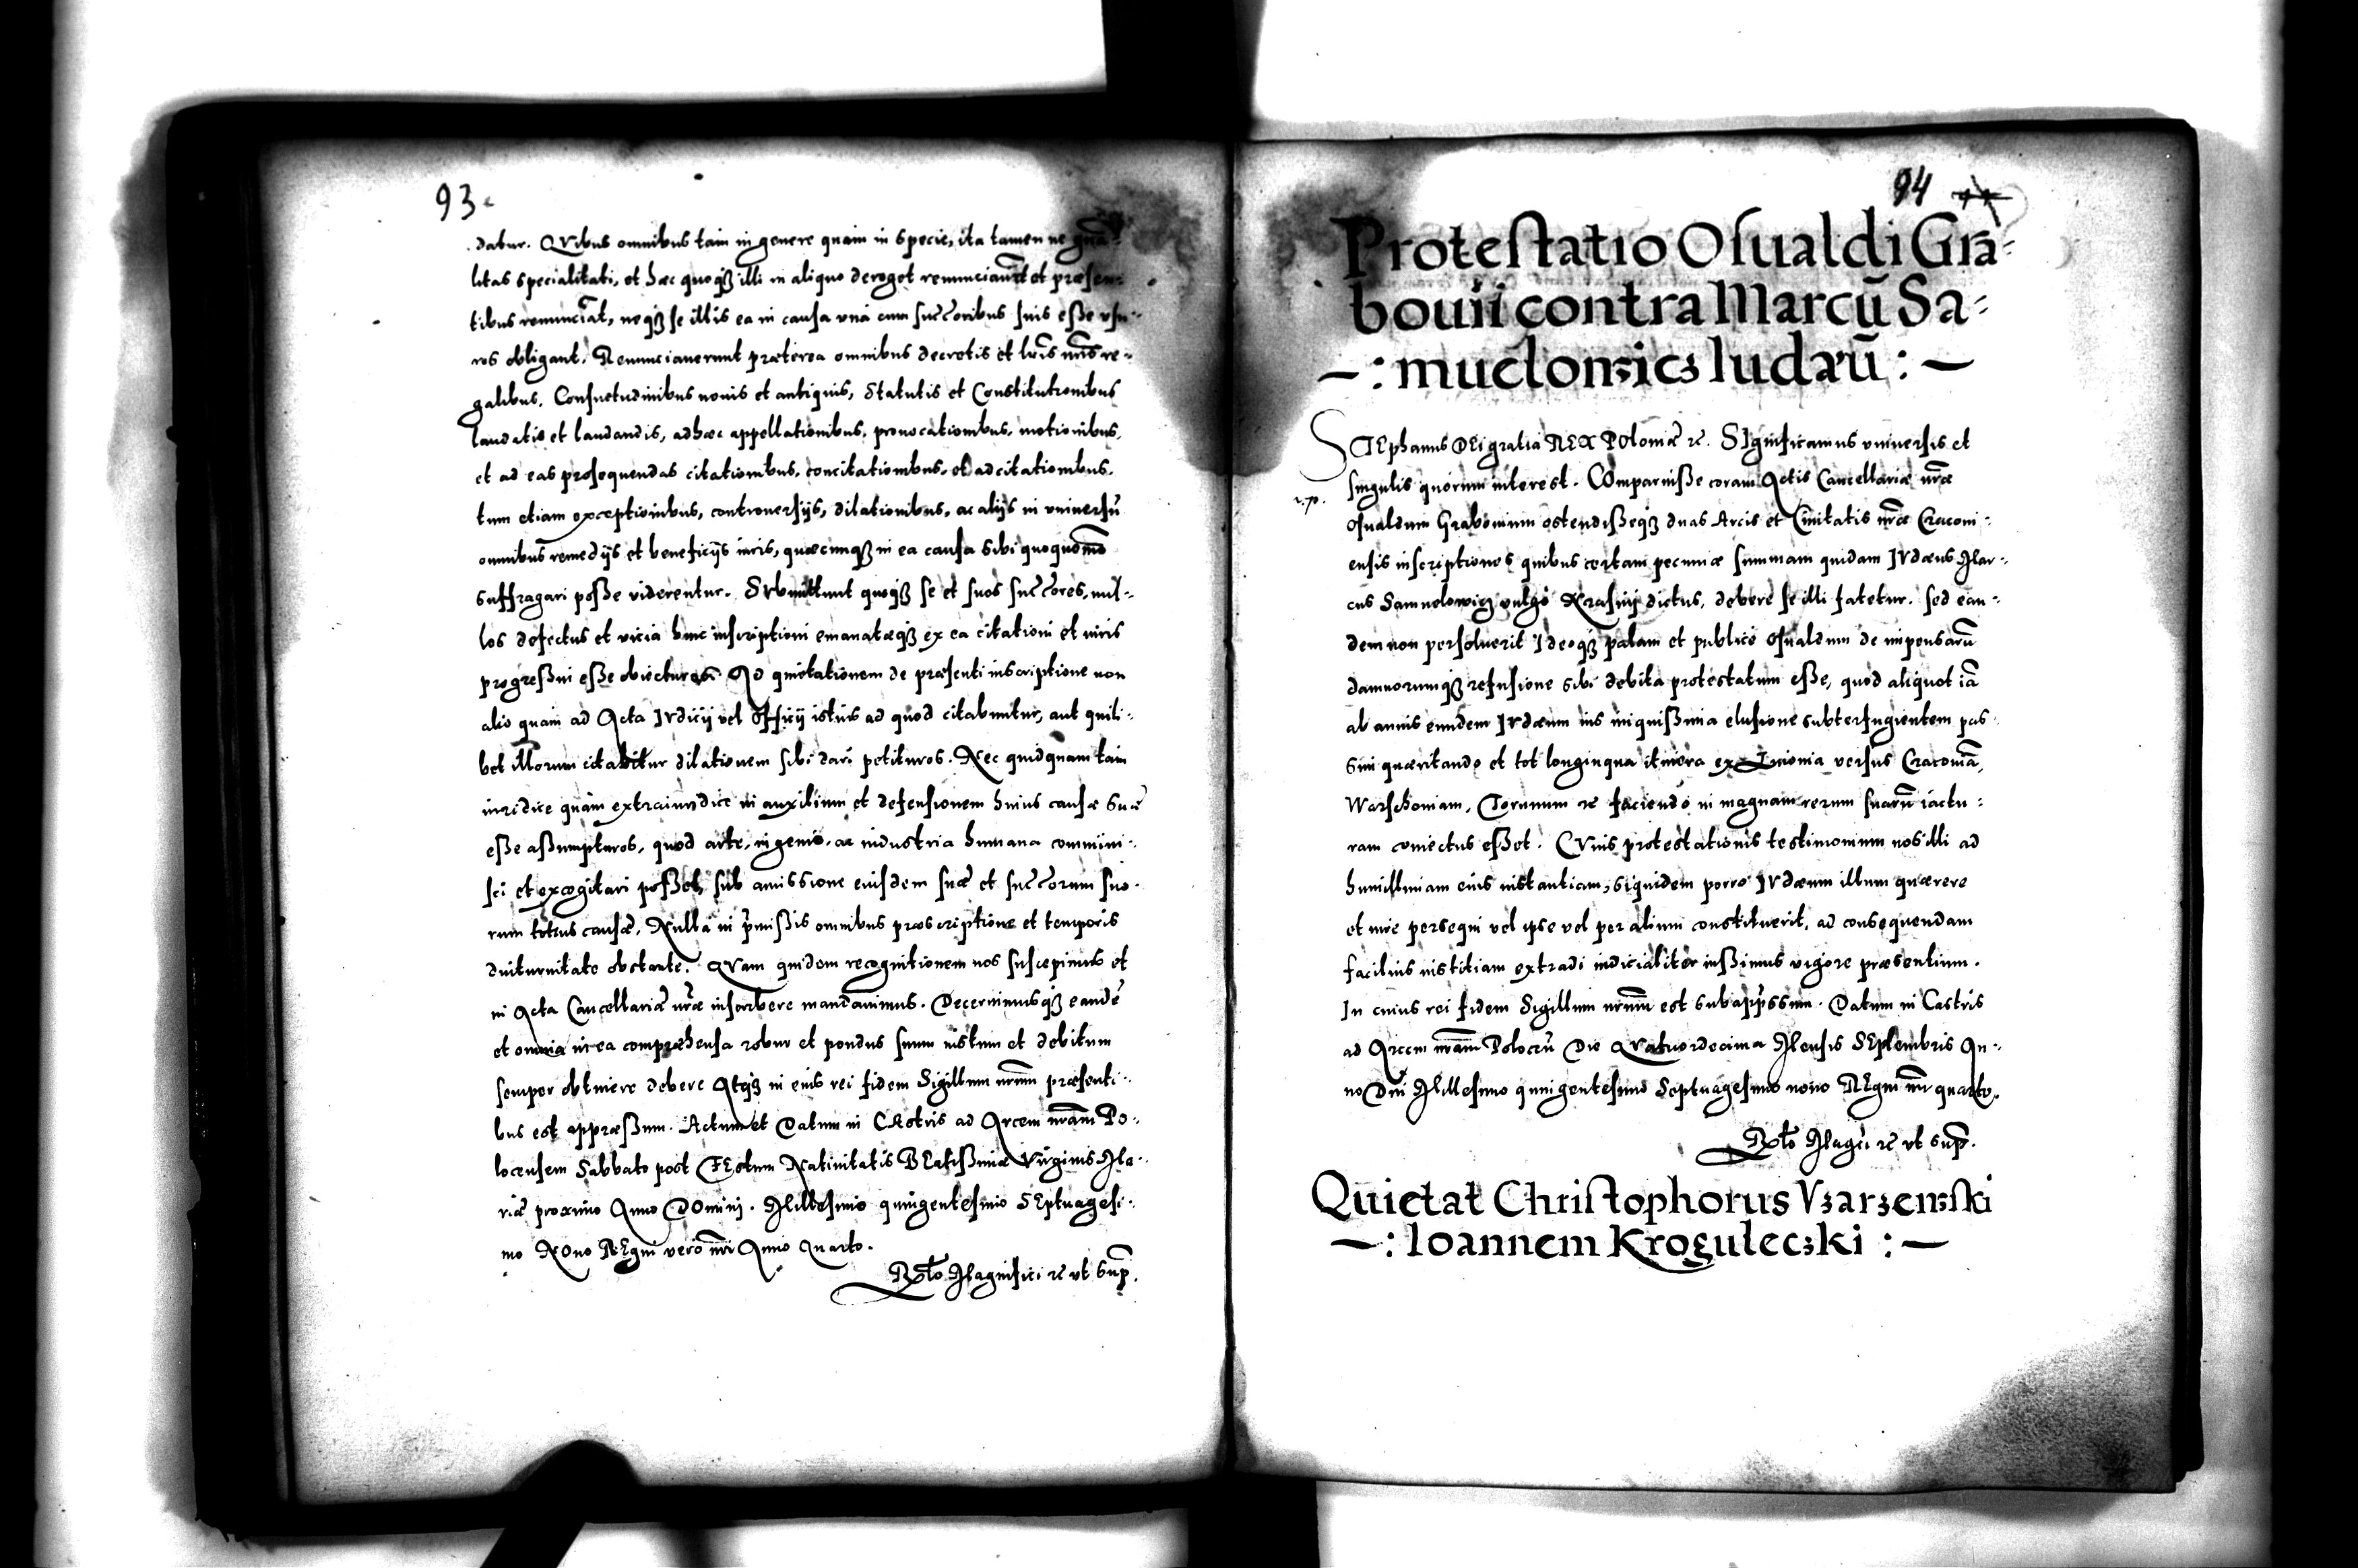 93
datur. Quibus omnibus tam in genere quam in specie, ita tamen ne gña-
litas specialitati, et hæc quoqȝ illi in aliquo deroget renunciaũt et præsen-
tibus renunciãt, neqȝ se illis ea in causa vna cum succ̃oribus suis esse vsu-
ros obligant. Renunciauerunt præterea omnibus decretis et lrĩs nrĩs re-
galibus. Consuetudinibus nouis et antiquis, Statutis et Constitutionibus
laudatis et laudandis, ad hæc appellationibus, prouocationibus, motionibus,
et ad eas prosequendas citationibus, concitationibus, et adcitationibus.
tum etiam exceptionibus, controuersijs, dilationibus, ac alijs in vniuersũ
omnibus remedijs et beneficijs iuris, quæcunqȝ in ea causa sibi quoquomõ
suffragari posse viderentur. Submittunt quoqȝ se et suos succ̃ores, nul-
los defectus et vicia huic inscriptioni emanatæqȝ ex ea citationi et iuris
progressui esse obiecturos. Ad quietationem de præsenti inscriptione non
alio quam ad Acta Iudicij vel Officij istius ad quod citabuntur, aut quili-
bet illorum citabitur dilationem sibi dari petituros. Nec quidquam tam
iuridice quam extraiuridice in auxilium et defensionem huius causæ suæ
esse assumpturos, quod arte, ingenio, ac industria humana commini-
sci et excogitari posset, sub amissione eiusdem suæ et succ̃orum suo-
rum totius causæ. Nulla in p̃missis omnibus præscriptione et temporis
diuturnitate obstante. Quam quidem recognitionem nos suscepimus et
in Acta Cancellariæ nrẽ inscribere mandauimus. Decernimusqȝ eandẽ
et omnia in ea compræhensa robur et pondus suum iustum et debitum
semper obtinere debere Atqȝ in eius rei fidem Sigillum nrũm præsenti-
bus est appræssum. Actum et Datum in CAstris ad Arcem nrãm Po-
locensem Sabbato post FEstum Natiuitatis BEatissimæ Virginis Ma-
riæ proximo Anno DOmini. Millesimo quingentesimo SEptuagesi-
mo NOno REgni vero nrĩ Anno quarto.
Rt̃o Magnifici rẽ vt sup̃.
94
Protestatio Osualdi Gra-
bouii contra Marcũ Sa-
-: muelowicȝ Iudæũ :-
STEphanus DEi gratia REX POloniæ rẽ. SIgnificamus vniuersis et
singulis quorum interest. COmparuisse coram Actis Cancellariæ nrẽ
Osualdum Grabouium ostendisseqȝ duas Arcis et Ciuitatis nrẽ Cracoui-
ensis inscriptiones quibus certam pecuniæ summam quidam IUdæus Mar-
cus Samuelowicȝ vulgo Krasnij dictus, debere se illi fatetur. sed ean-
dem non persoluerit Ideoqȝ palam et publicè Osualdum de impensarũ
damnorumqȝ refusione sibi debita protestatum esse, quod aliquot iã
ab annis eundem IUdæum ius iniquissima elusione subterfugientem pas-
sim quæritando et tot longinqua itinera ex Liuonia versus Cracouiã,
Warschouiam, Torunum rẽ faciendo in magnam rerum suarũ iactu-
ram coniectus esset. CUius protestationis testimonium nos illi ad
humillimam eius instantiam, siquidem porro IUdæum illum quærere
et iure persequi vel ipse vel per alium constituerit, ad consequendam
facilius iustitiam extradi iudicialiter iussimus vigore præsentium.
In cuius rei fidem Sigillum nrũm est subapp̃ssum. Datum in Castris
ad Arcem nrãm Polocen̄ Die Quatuordecima Mensis SEptembris An-
no Dnĩ Millesimo quingentesimo Septuagesimo nono REgni nrĩ quarto.
Rt̃o Magci rẽ vt sup̃.
Quietat Christophorus Vȝarȝewski
-: Ioannem Krogulecȝki :-